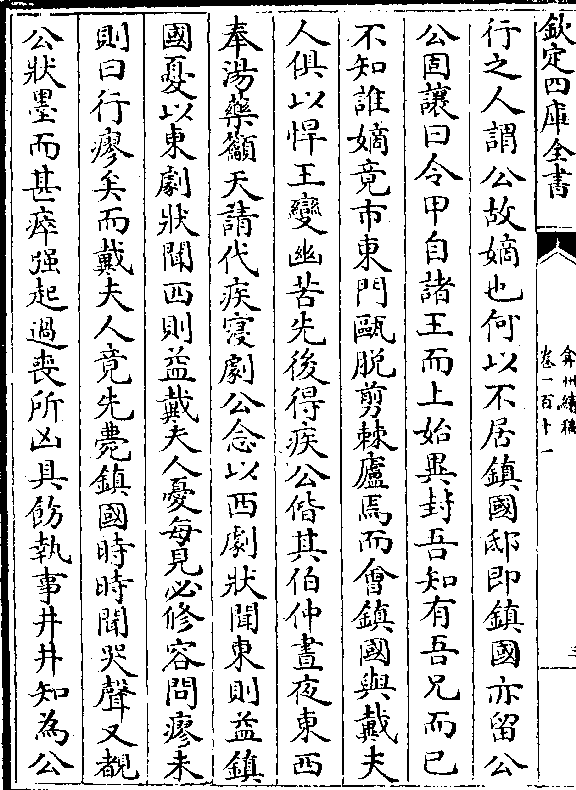 欽定四庫全書
弇州續稿
卷一百十一
行之人謂公故嫡也何以不居鎮國邸即鎮國亦留公
公固讓曰令甲自諸王而上始異封吾知有吾兄而已
不知誰嫡竟市東門甌脱剪棘廬焉而會鎮國與戴夫
人俱以悍王變幽苦先後得疾公偕其伯仲晝夜東西
奉湯藥籲天請代疾寖劇公念以西劇狀聞東則益鎮
國憂以東劇狀聞西則益戴夫人憂每見必修容問瘳未
則曰行瘳矣而戴夫人竟先薨鎮國時時聞哭聲又覩
公狀墨而甚瘁强起過喪所凶具飭執事井井知為公